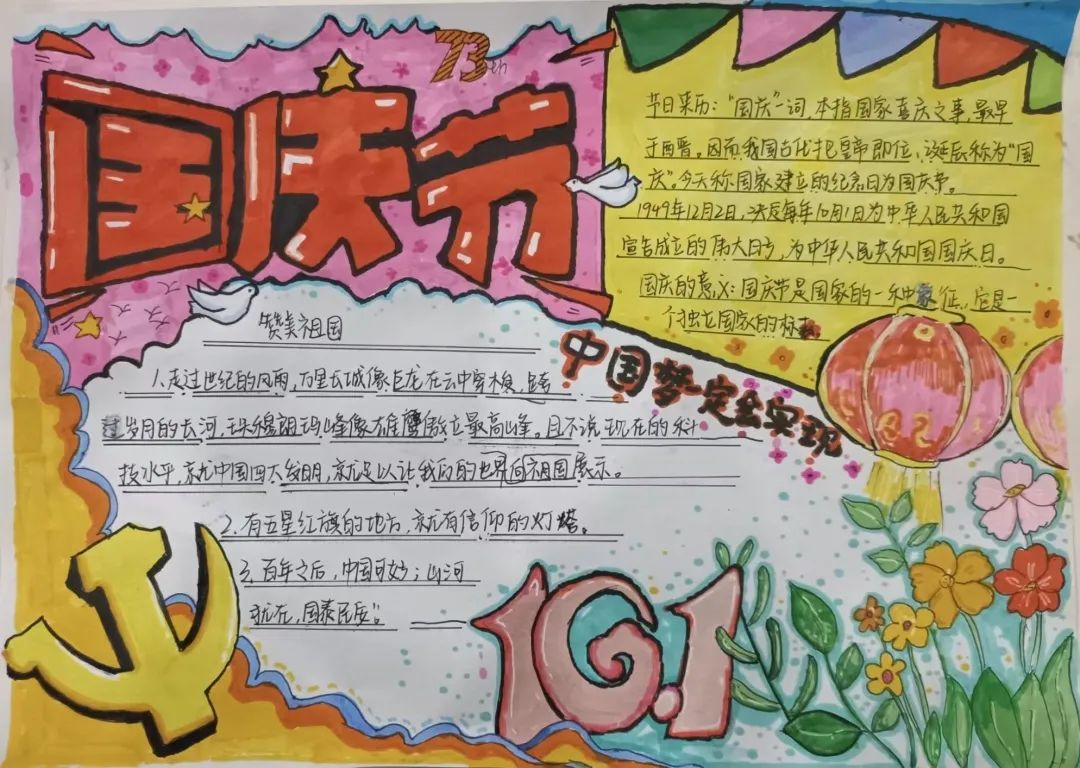 国庆节
73th
节日来历：“国庆”一词，本指国家喜庆之事，最早
于西晋。因而我国古代把皇帝即位、诞辰称为“国
庆”。今天称国家建立的纪念日为国庆节。
1949年12月2日，决定每年10月1日为中华人民共和国
宣告成立的伟大日子，为中华人民共和国国庆日。
国庆的意义：国庆节是国家的一种象征，它是一
个独立国家的标志
赞美祖国
1.走过世纪的风雨，万里长城像巨龙在云中穿梭，跨
过岁月的长河，珠穆朗玛峰像雄鹰傲立最高山峰。且不说现在的科
技水平，就凭中国四大发明，就足以让我们的世界向祖国展示。
2.有五星红旗的地方，就有信仰的灯塔。
3.百年之后，中国可妙；山河
犹在，国泰民安。”
中国梦一定会实现
10.1